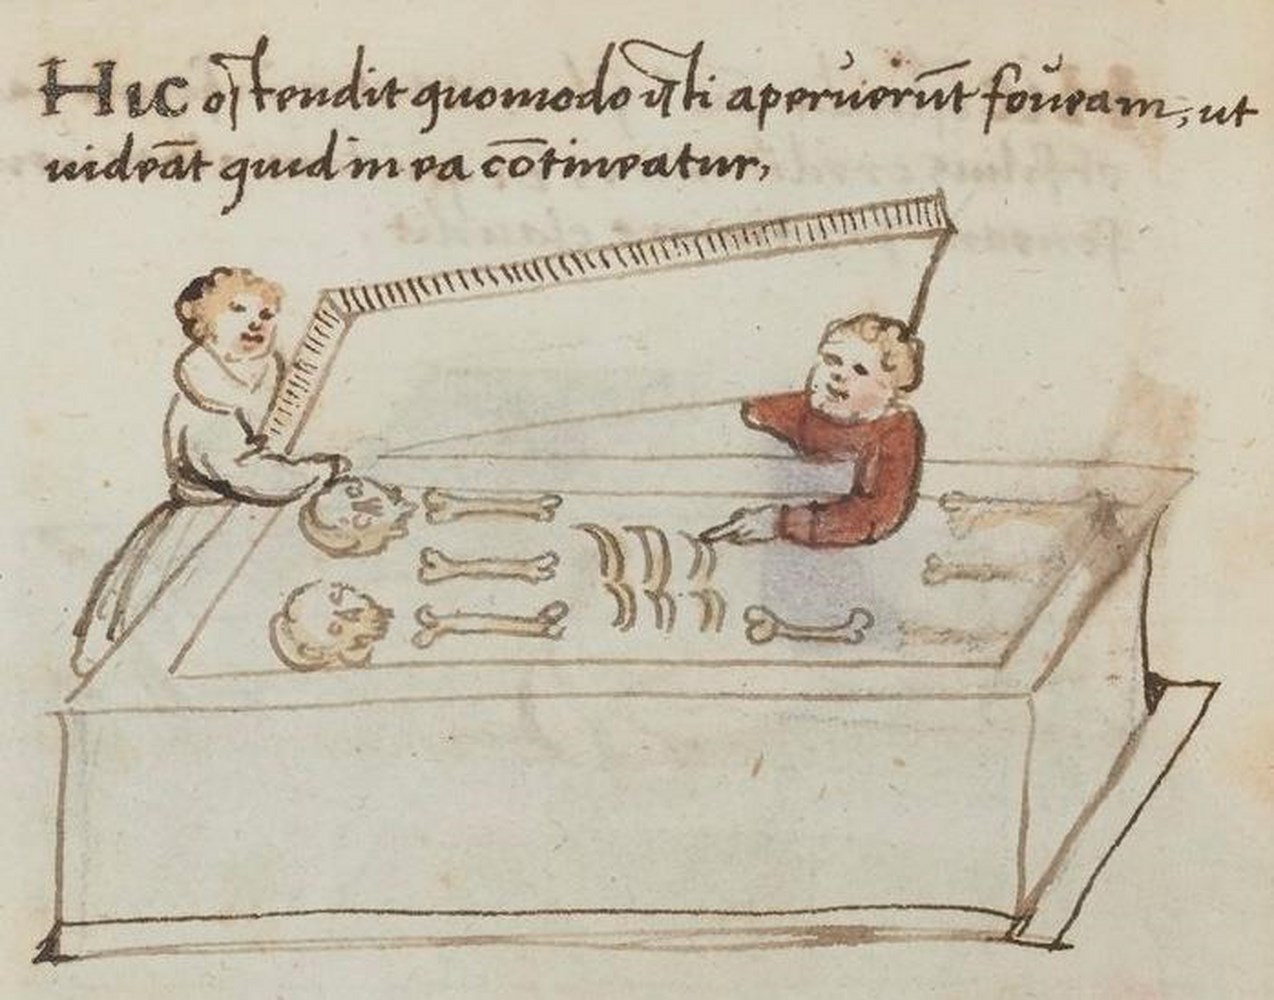 Hic ostendit quomodo isti aperuerūt foueam, ut
uideāt quid in ea cōtineatur,